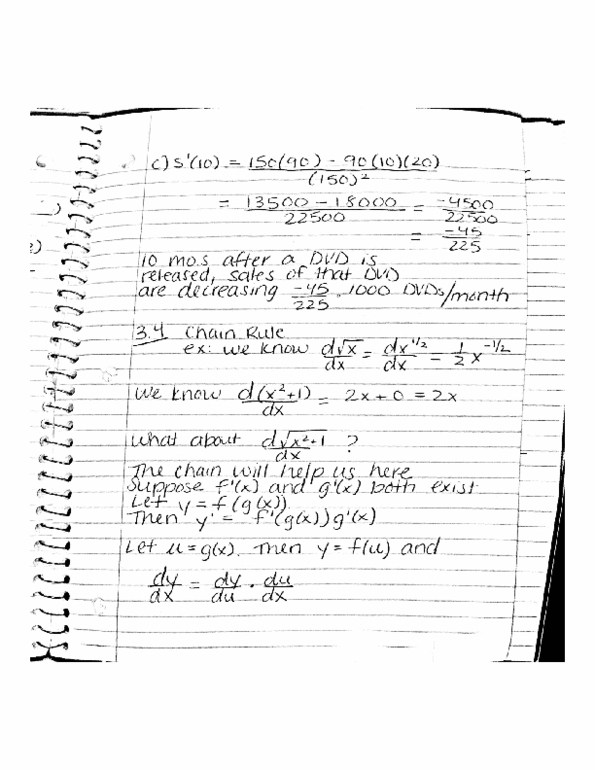 c) s'(10) = 150(90) - 90(10)(20) / (150)²
= 13500 - 18000 / 22500 = -4500 / 22500
= -45 / 225
10 mo.s after a DVD is
released, sales of that DVD
are decreasing -45/225 · 1000 DVDs/month
3.4 Chain Rule
ex: we know d√x/dx = dx^1/2 / dx = 1/2 x^-1/2
we know d(x²+1)/dx = 2x + 0 = 2x
What about d√x²+1 / dx ?
The chain will help us here
Suppose f'(x) and g'(x) both exist
Let y = f(g(x))
Then y' = f'(g(x))g'(x)
Let u = g(x). Then y = f(u) and
dy/dx = dy/du · du/dx